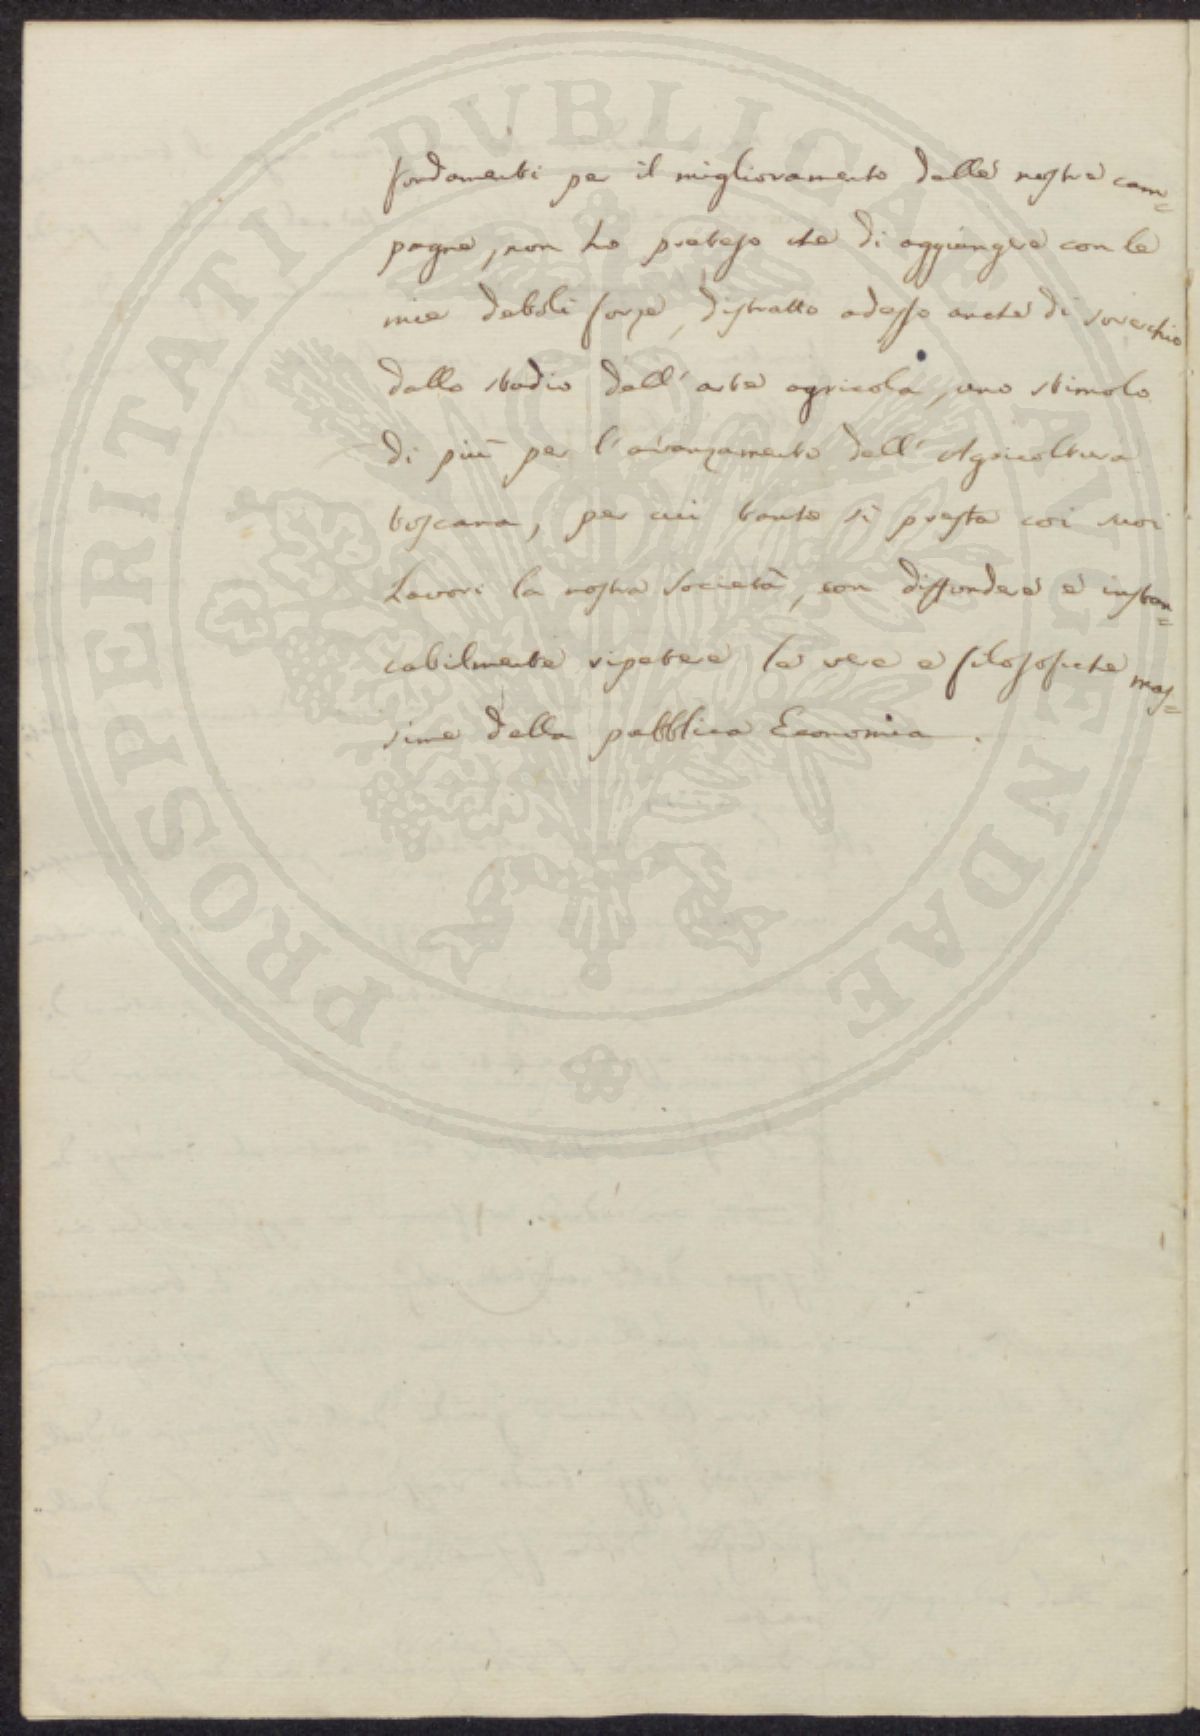 PROSPERITATI PVBLICAE AVGENDAE
fondamenti per il miglioramento delle nostre cam=
pagne, non ho preteso che di aggiungere con le
mie deboli forze, distratto adesso anche di soverchio
dallo studio dell'arte agricola, uno stimolo
di più per l'avanzamento dell'Agricoltura
toscana, per cui tanto si presta coi suoi
Lavori la nostra Società, con diffondere e instan=
cabilmente ripetere le vere e filosofiche mas=
sime della pubblica Economia.